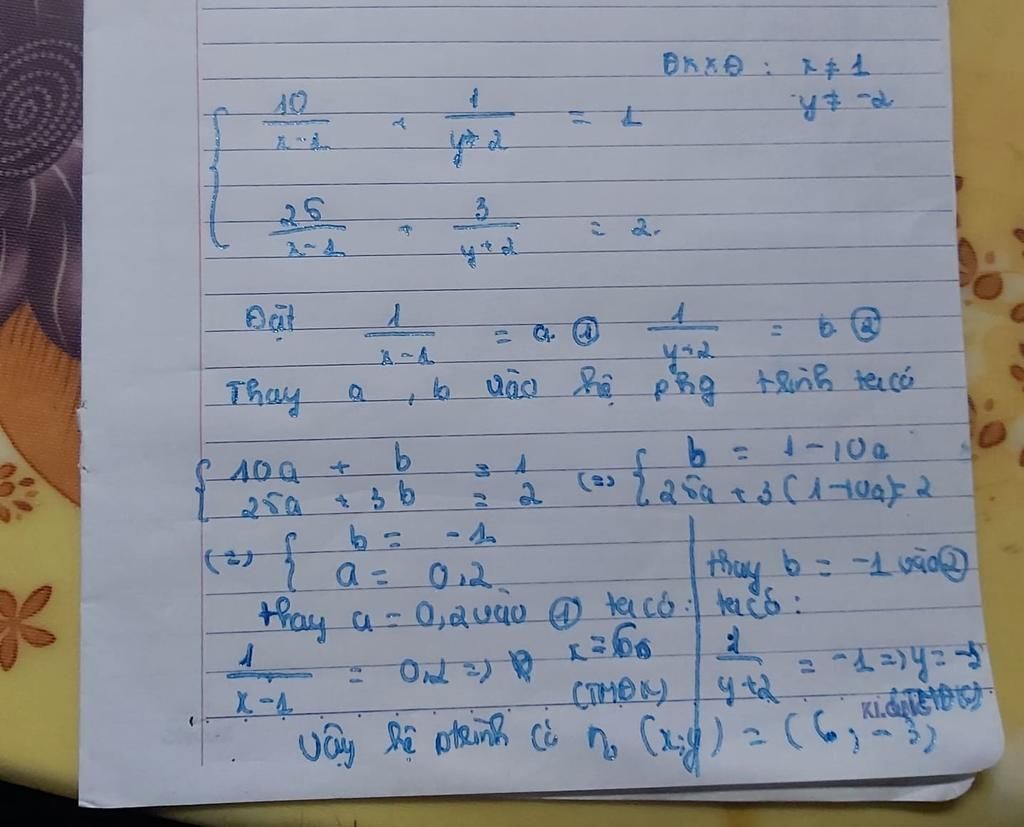 ĐKXĐ : x ≠ 1
y ≠ -2
{ 10/(x-1) + 1/(y+2) = 1
25/(x-1) + 3/(y+2) = 2.
Đặt 1/(x-1) = a ① 1/(y+2) = b ②
Thay a , b vào hệ phg trình ta có
{ 10a + b = 1 (=) { b = 1-10a
25a + 3b = 2 25a + 3(1-10a) = 2
(=) { b = -1
a = 0,2
thay a = 0,2 vào ① ta có:
1/(x-1) = 0,2 => x = 6
(TMĐK)
thay b = -1 vào②
ta có:
1/(y+2) = -1 => y = -3
(TMĐK)
Vậy hệ ptrình có n0 (x;y) = (6; -3)